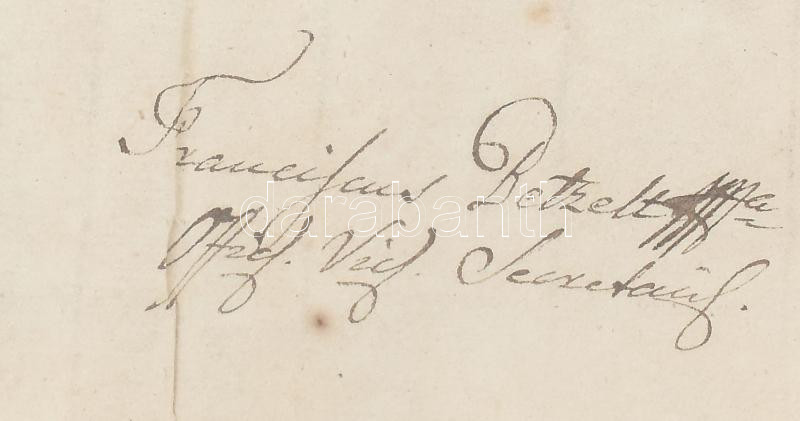 Franciscus Betzelt mpa
Offici. Vici. Secretarius.
darabanth